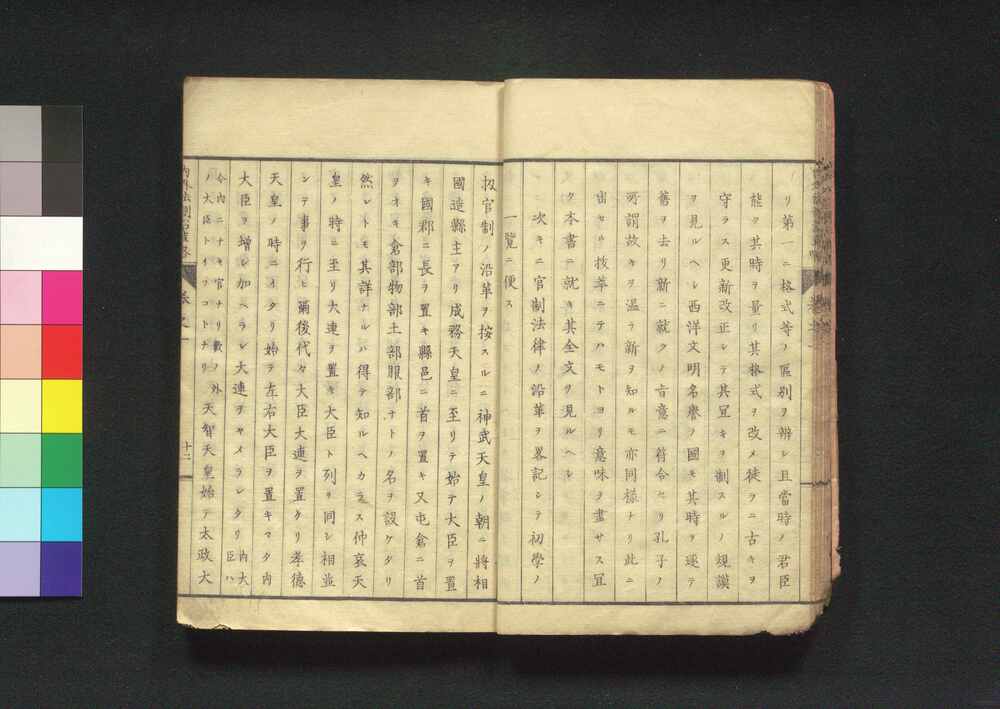 リ第一ニ格式等ノ區別ヲ辨シ且當時ノ君臣
能ク其時ヲ量リ其格式ヲ改メ徒ラニ古キヲ
守ラス更新改正シテ其冝キヲ制スルノ規謨
ヲ見ルヘシ西洋文明名譽ノ國モ其時ヲ逐テ
舊ヲ去リ新ニ就クノ旨意ニ符合セリ孔子ノ
所謂故キヲ温ラ新ヲ知ルモ亦同様ナリ此ニ
出セル抜萃ニテハモトヨリ意味ヲ盡サス冝
ク本書ニ就キ其全文ヲ見ルヘシ
次キニ官制法律ノ沿革ヲ畧記シテ初學ノ
一覽ニ便ス
扨官制ノ沿革ヲ按スルニ神武天皇ノ朝ニ將相
國造縣主アリ成務天皇ニ至リテ始テ大臣ヲ置
キ國郡ニ長ヲ置キ縣邑ニ首ヲ置キ又屯倉ニ首
ヲオキ倉部物部土部服部ナトノ名ヲ設ケタリ
然レトモ其詳ナルハ得テ知ルヘカラス仲哀天
皇ノ時ニ至リ大連ヲ置キ大臣ト列リ同シ相並
シテ事リ行ヒ爾後代々大臣大連ヲ置クリ孝德
天皇ノ時ニイタリ始テ左右大臣ヲ置キマタ内
大臣ヲ增シ加ヘラレ大連ヲヤメラレタリ内大臣ハ
令内ニナキ官ナリ數ノ外ノ大臣トイフコトナリ天智天皇始テ太政大
十二